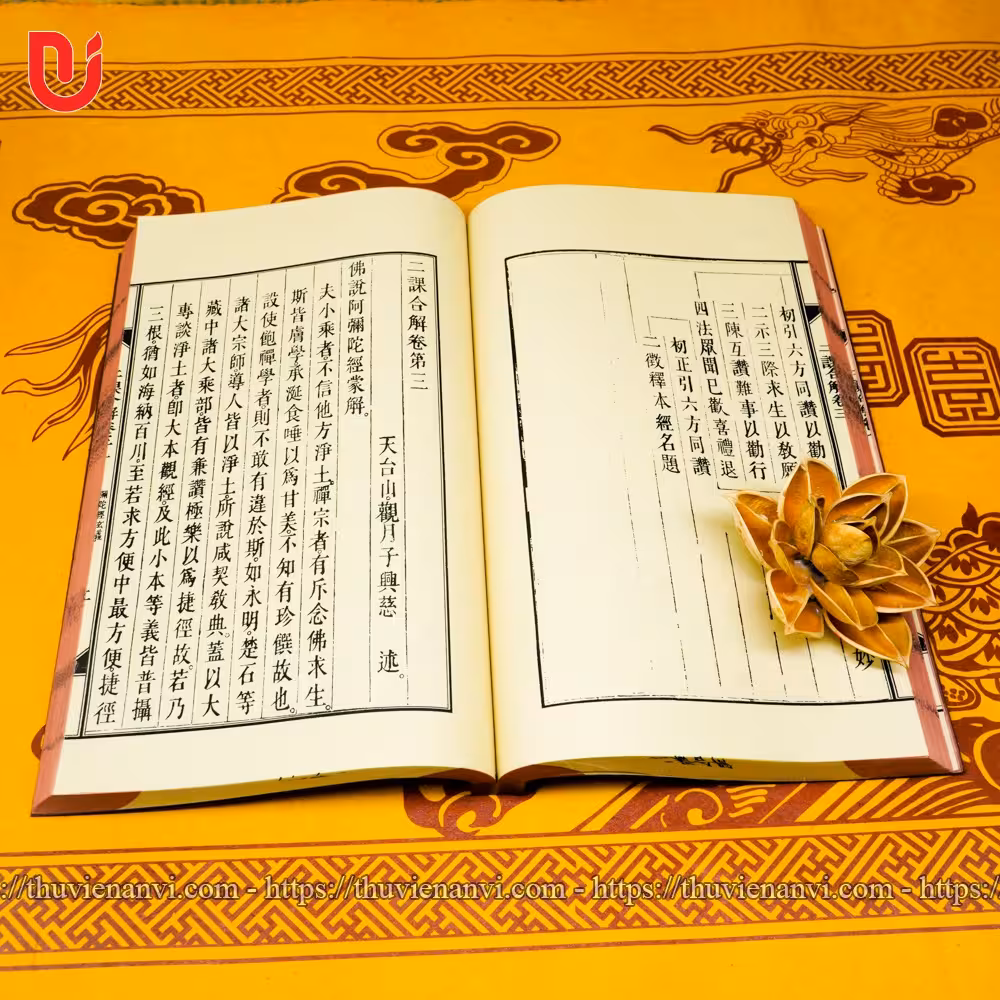 二課合解卷二
初引六方同讚以勸
二示三際來生以敎願
三陳互讚難事以勸行
四法眾聞已歡喜禮退
初正引六方同讚
二徵釋本經名題
妙
二課合解卷第三
佛說阿彌陀經蒙解。
天台山。觀月子興慈 述。
夫小乘者。不信他方淨土。禪宗者。有斥念佛求生。
斯皆膚學承涎食唾以爲甘美。不知有珍饌故也。
設使飽禪學者。則不敢有違於斯。如永明。楚石等
諸大宗師。導人皆以淨土。所說咸契敎典。蓋以大
藏中諸大乘部。皆有兼讚極樂以爲捷徑故。若乃
專談淨土者。卽大本觀經。及此小本等義。皆普攝
三根。猶如海納百川。至若求方便中最方便。捷徑
彌陀經玄義
https://thuvienanvi.com - https://thuvienanvi.com - https://thuvienanvi.com - https://